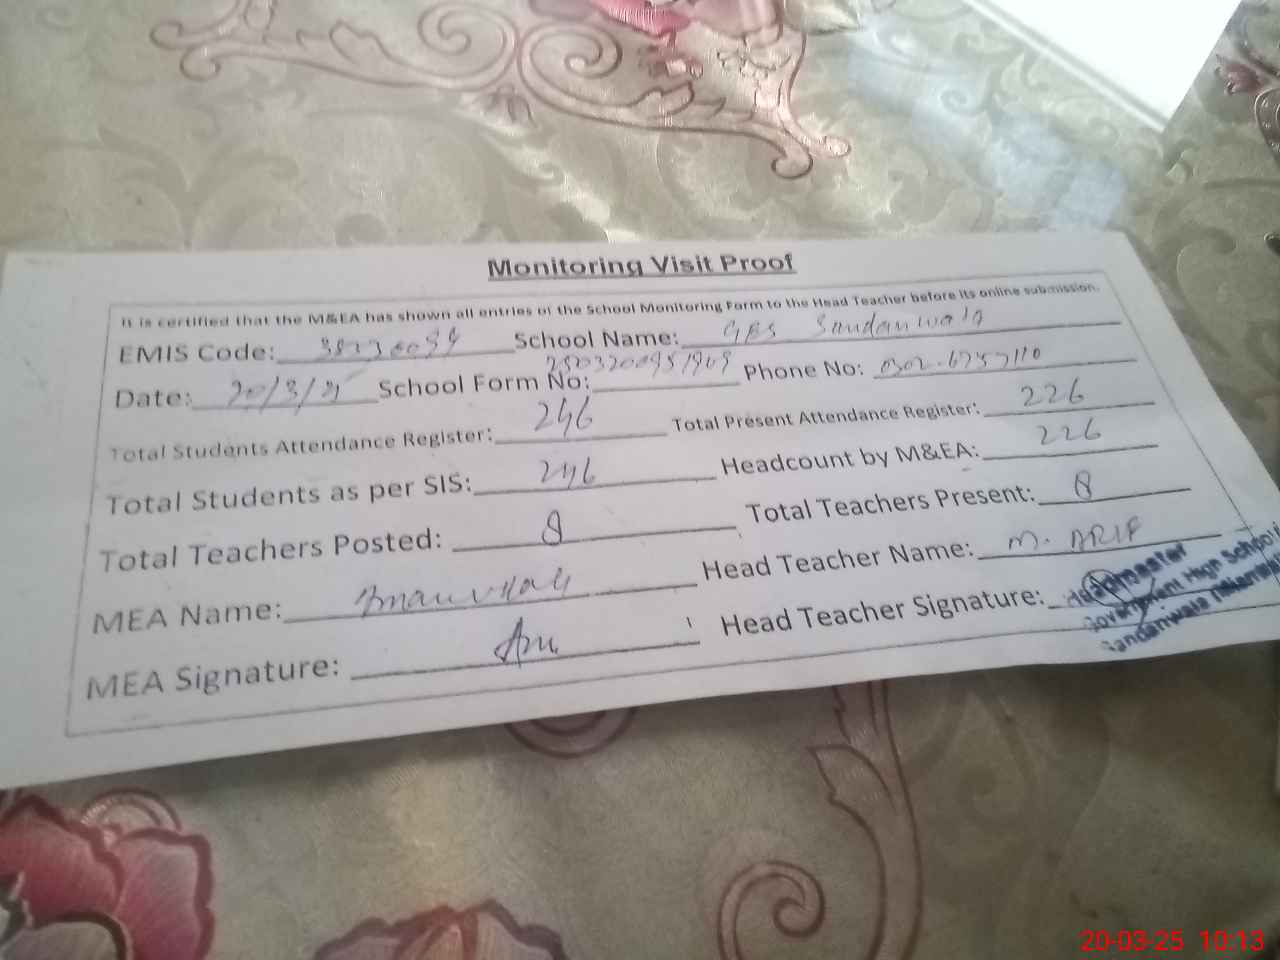 Monitoring Visit Proof
It is certified that the M&EA has shown all entries of the School Monitoring Form to the Head Teacher before its online submission.
EMIS Code: School Name: Sandanwala
Date: 20/3/25 School Form No: Phone No: 0302-6757110
Total Students Attendance Register: 246 Total Present Attendance Register: 226
Total Students as per SIS: 246 Headcount by M&EA: 226
Total Teachers Posted: 8 Total Teachers Present: 8
MEA Name: Head Teacher Name: M. ARIF
MEA Signature: Head Teacher Signature:
Headmaster
Government High School
Sandanwala
20-03-25 10:13